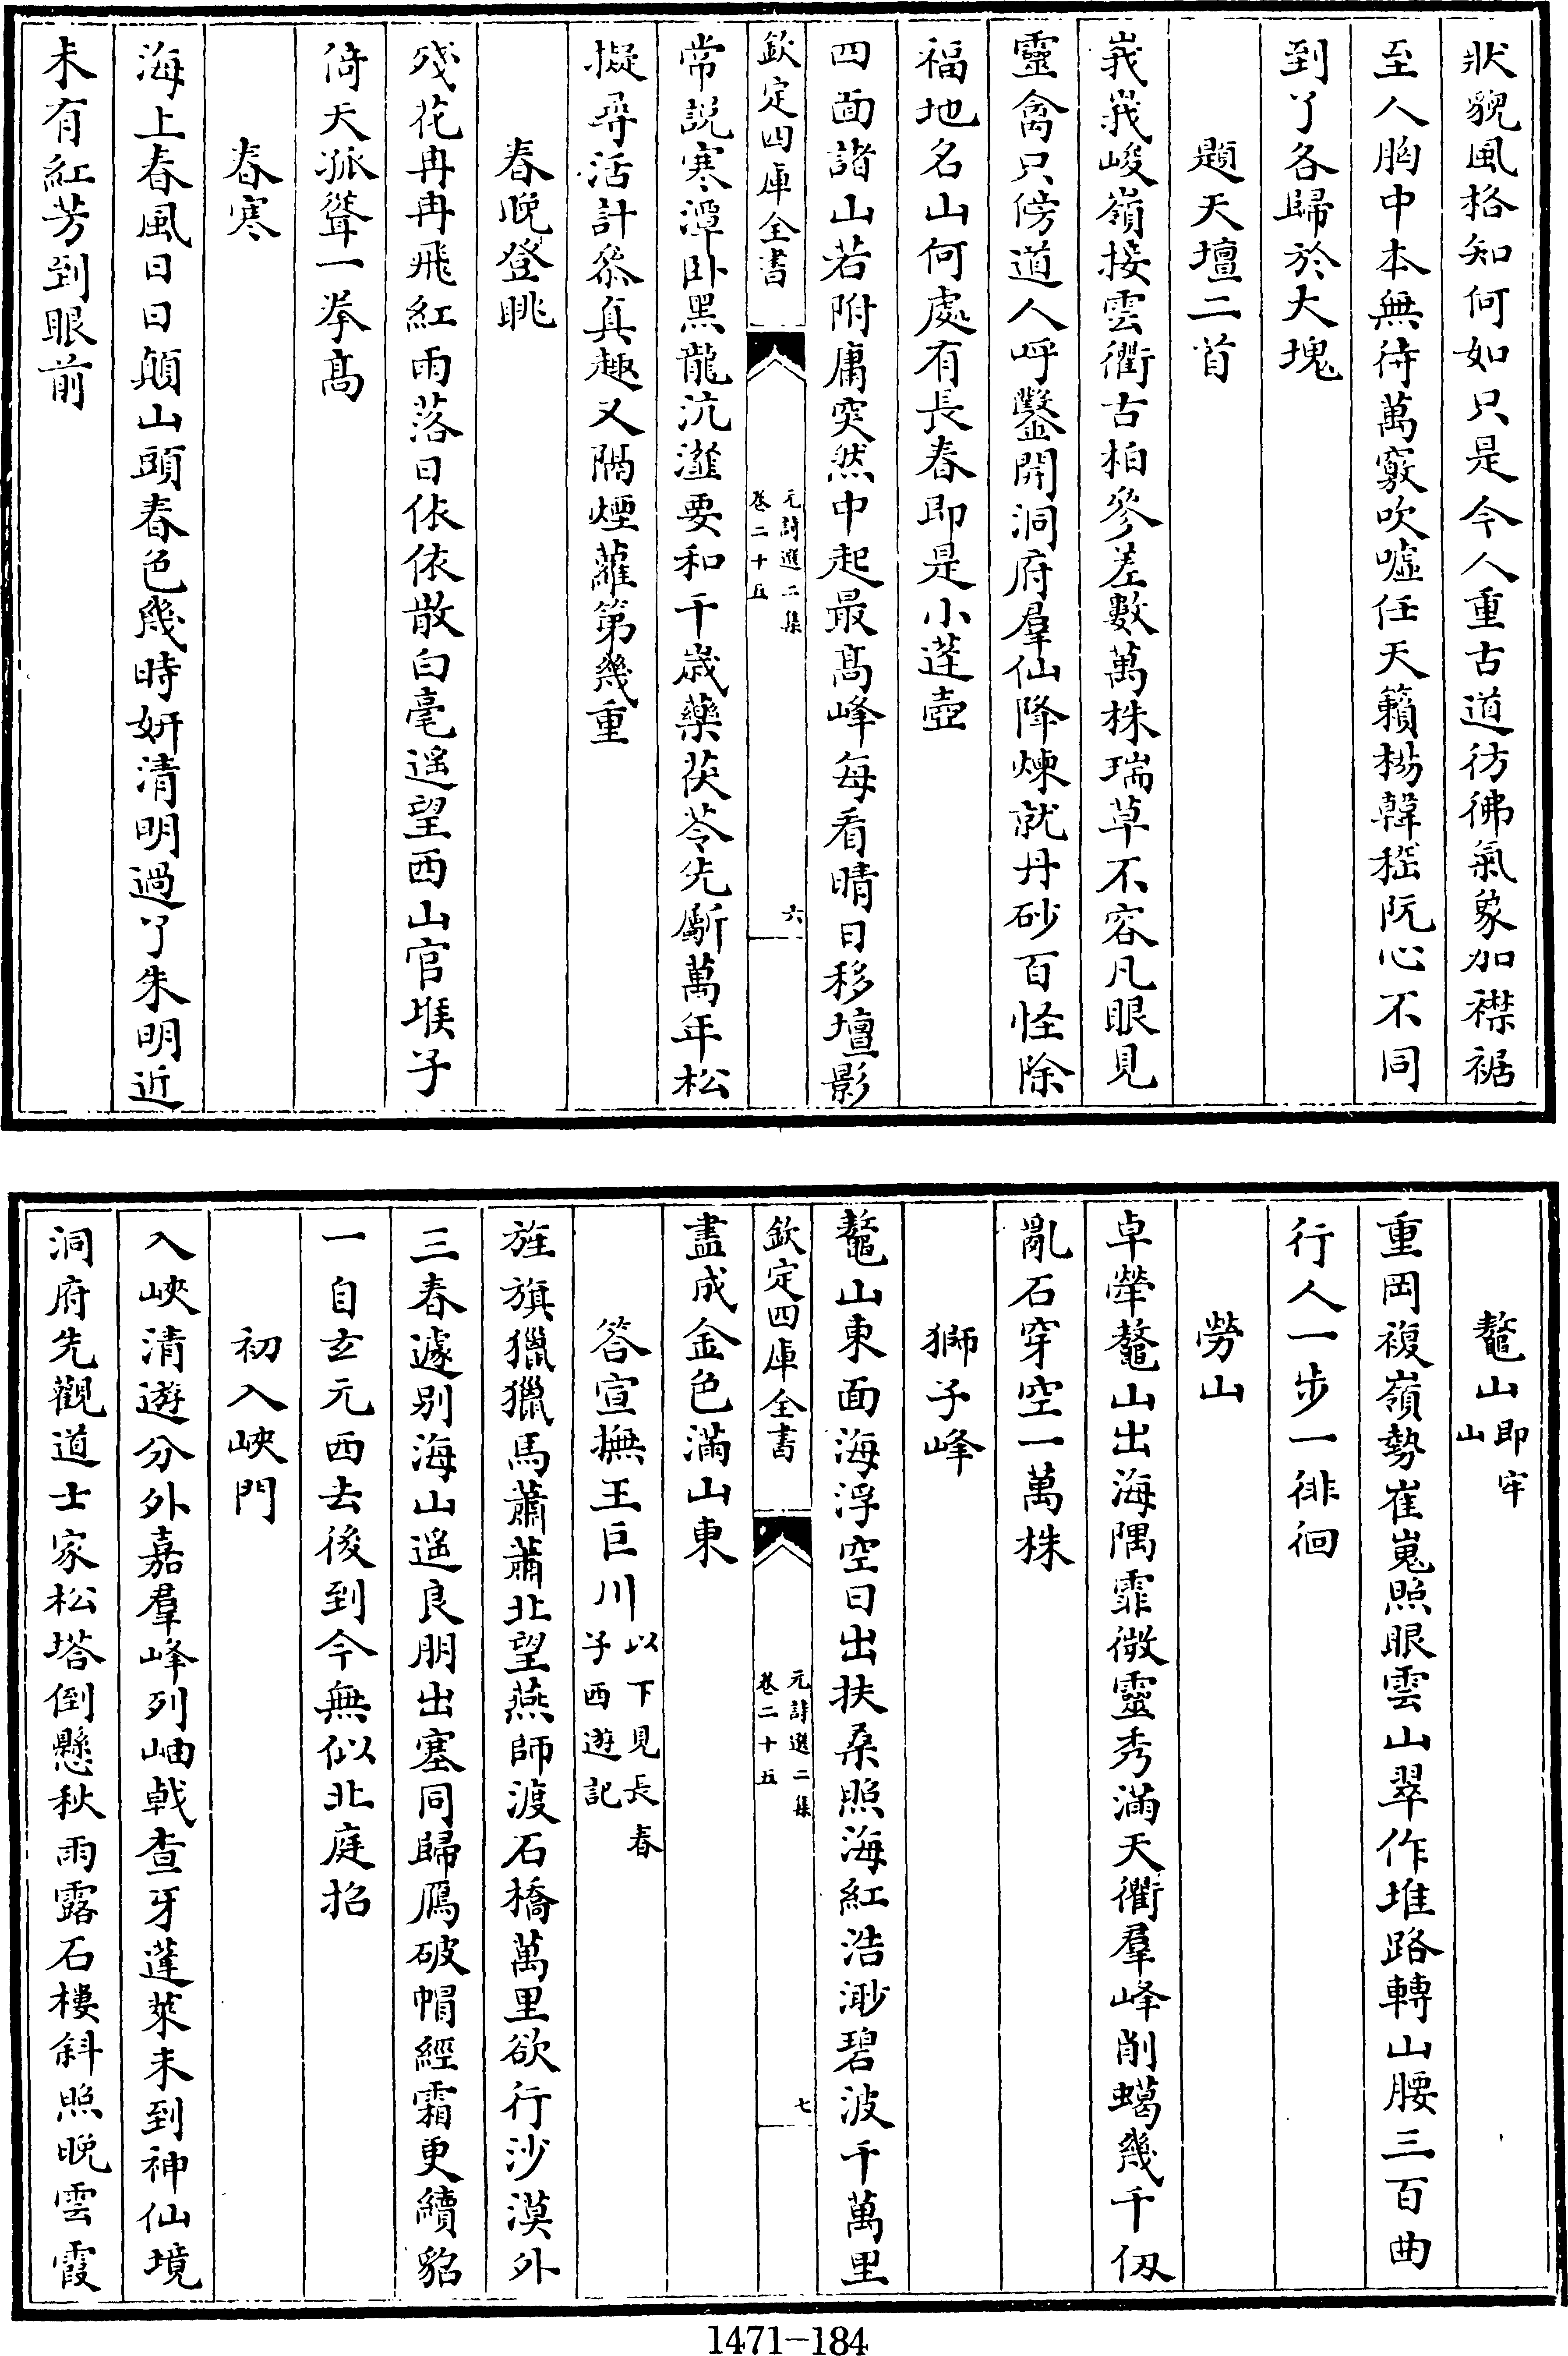 狀貌風格知何如只是今人重古道彷彿氣象加襟裾
至人胸中本無待萬竅吹噓任天籟楊韓嵇阮心不同
到了各歸於大塊
題天壇二首
峩峩峻嶺接雲衢古柏參差數萬株瑞草不容凡眼見
靈禽只傍道人呼鑿開洞府羣仙降煉就丹砂百怪除
福地名山何處有長春即是小蓬壺
四面諸山若附庸突然中起最高峰每看晴日移壇影
欽定四庫全書
元詩選二集
卷二十五
六
常説寒潭卧黑龍沆瀣要和千歲藥茯苓先斸萬年松
擬尋活計參真趣又隔煙蘿第幾重
春晚登眺
殘花冉冉飛紅雨落日依依散白毫遥望西山官堠子
倚天孤聳一拳高
春寒
海上春風日日顛山頭春色幾時妍清明過了朱明近
未有紅芳到眼前
鼇山即牢
山
重岡複嶺勢崔嵬照眼雲山翠作堆路轉山腰三百曲
行人一步一徘徊
勞山
卓犖鼇山出海隅霏微靈秀滿天衢羣峰削蠟幾千仭
亂石穿空一萬株
獅子峰
鼇山東面海浮空日出扶桑照海紅浩渺碧波千萬里
欽定四庫全書
元詩選二集
卷二十五
七
盡成金色滿山東
答宣撫王巨川以下見長春
子西遊記
旌旗獵獵馬蕭蕭北望燕師渡石橋萬里欲行沙漠外
三春遽别海山遥良朋出塞同歸鴈破帽經霜更續貂
一自玄元西去後到今無似北庭招
初入峽門
入峽清遊分外嘉羣峰列岫戟查牙蓬萊未到神仙境
洞府先觀道士家松塔倒懸秋雨露石樓斜照晚雲霞
1471-184